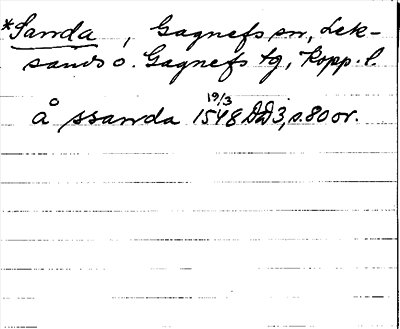 *Sanda, Gagnefs sn, Lek-
sands o. Gagnefs tg, Kopp. l.
19/3
å ssanda 1548 DD 3, s. 80 or.